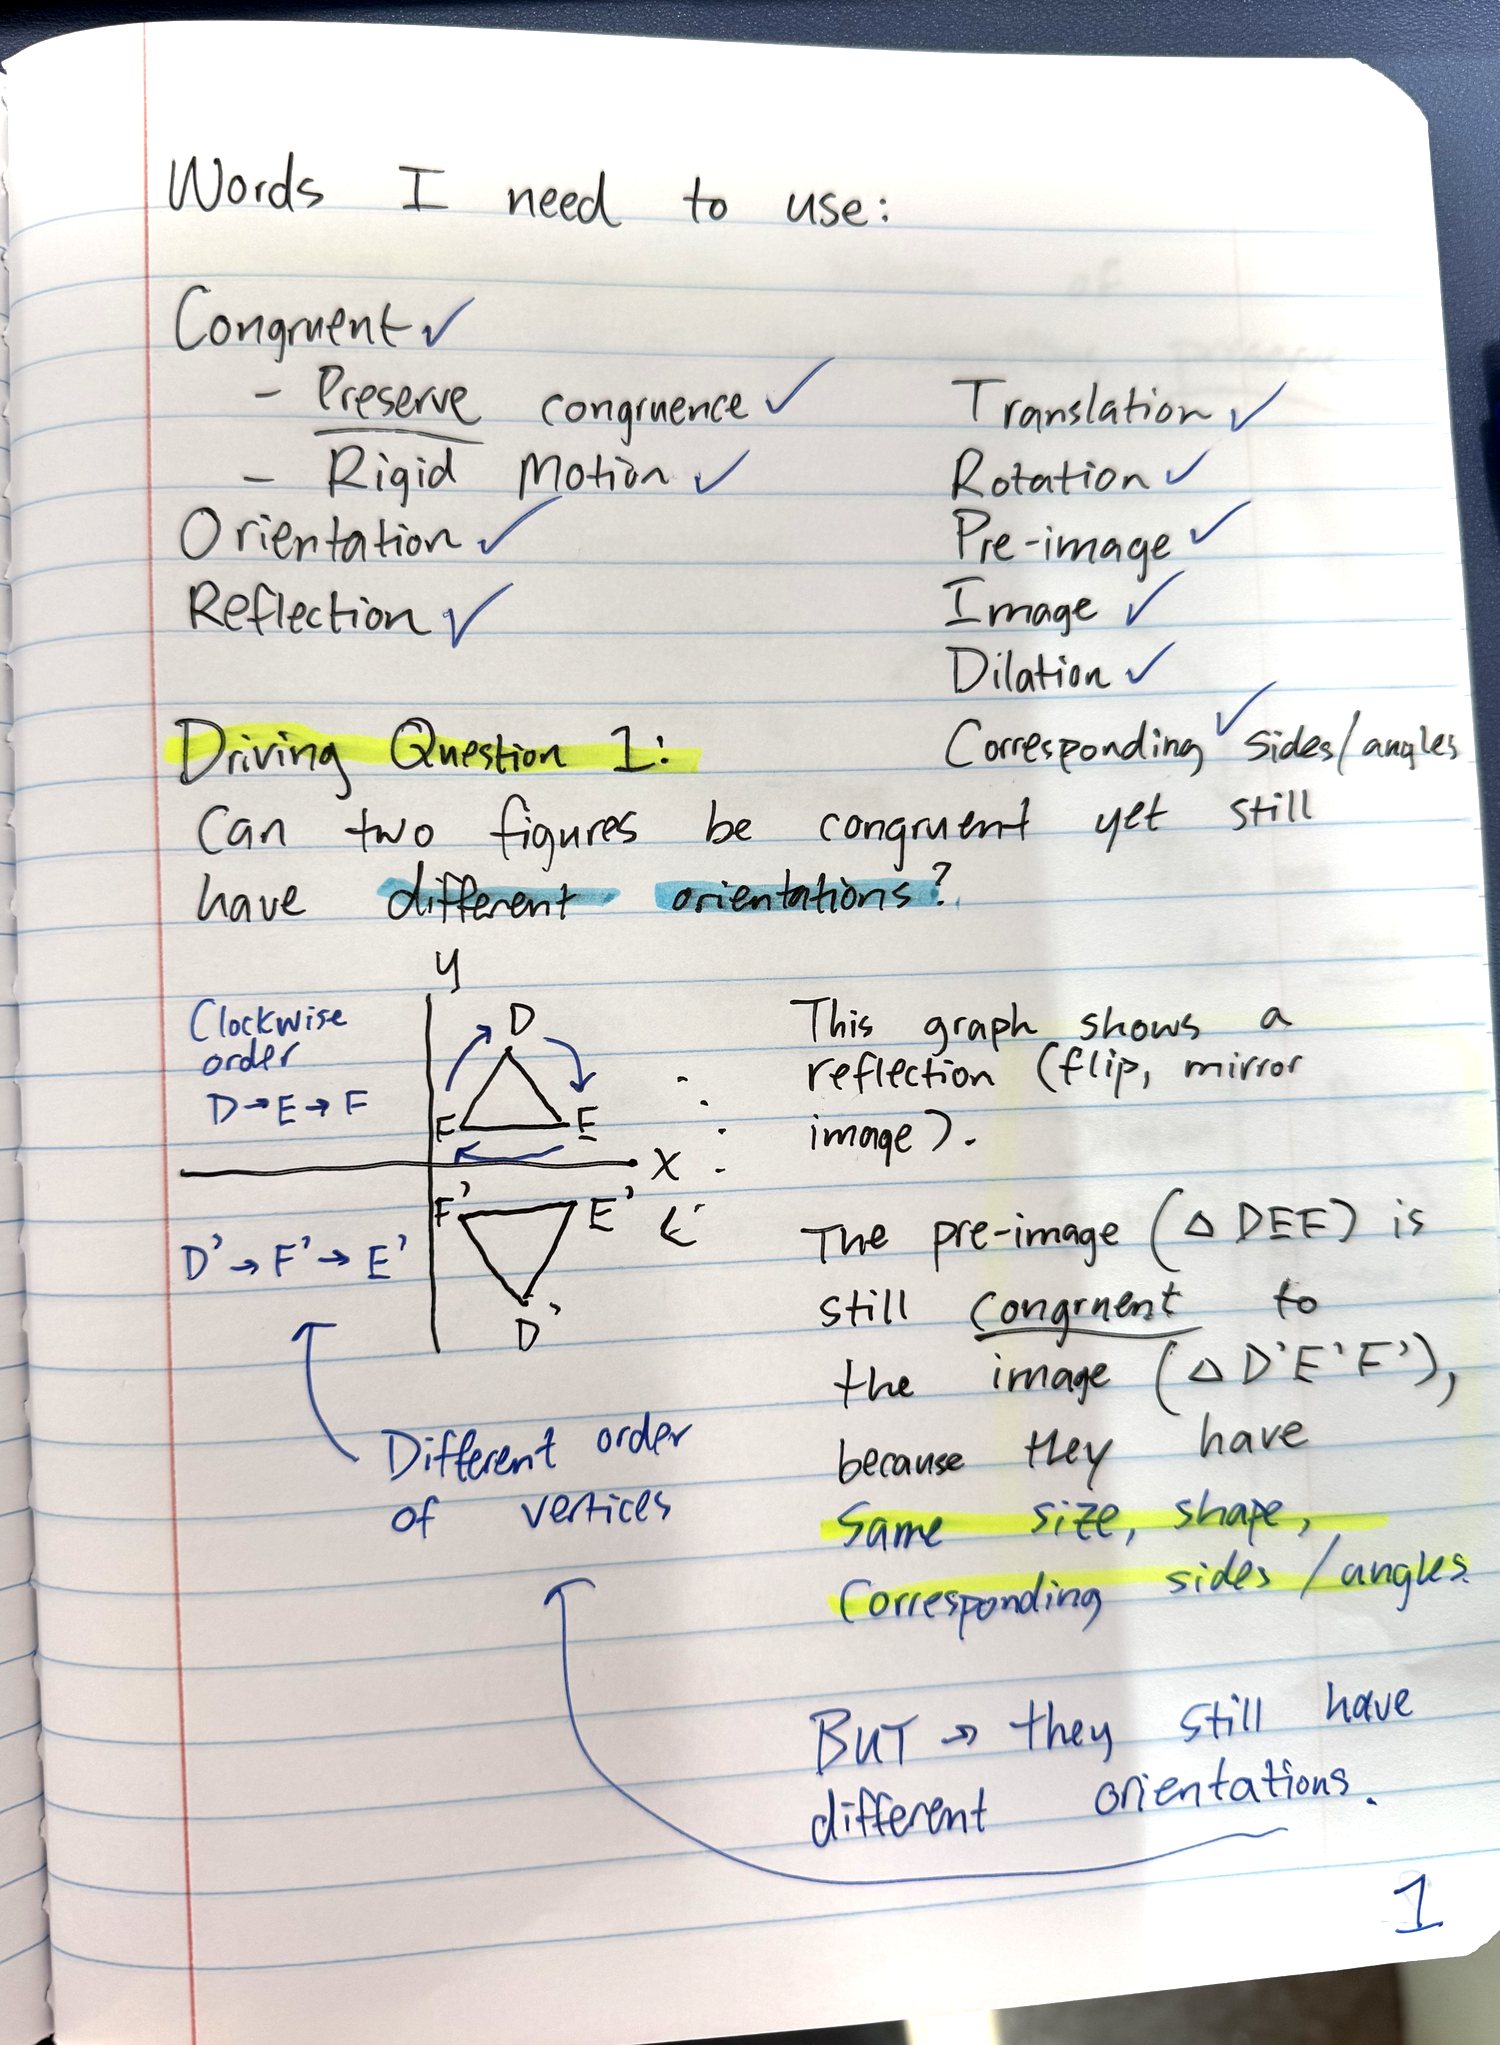 Words I need to use:
Congruent ✓
- Preserve congruence ✓
- Rigid Motion ✓
Orientation ✓
Reflection ✓
Translation ✓
Rotation ✓
Pre-image ✓
Image ✓
Dilation ✓
Corresponding ✓ sides/angles
Driving Question 1:
Can two figures be congruent yet still
have different orientations?
y
Clockwise
order
D→E→F
D
F
E
x
F'
E'
D'
D'→F'→E'
Different order
of vertices
This graph shows a
reflection (flip, mirror
image).
The pre-image (△ DEF) is
still congruent to
the image (△ D'E'F'),
because they have
Same size, shape,
Corresponding sides/angles.
BUT → they still have
different orientations.
1